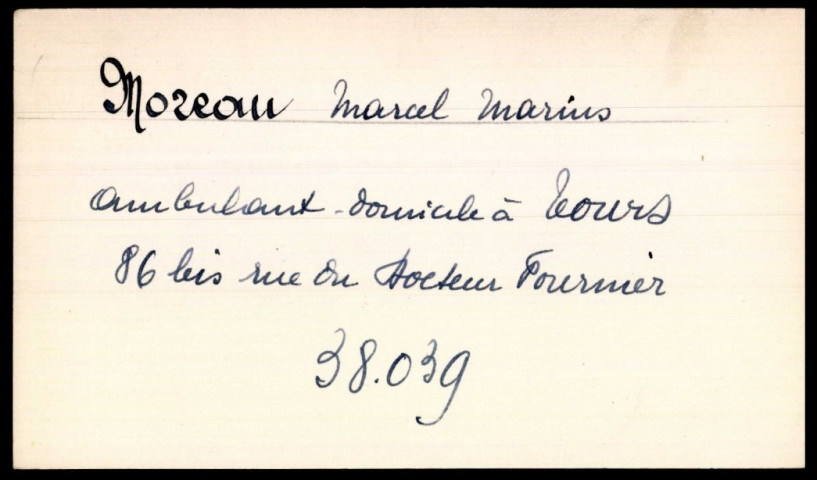 Moreau Marcel Marius
ambulant - domicile à Tours
86 bis rue du Docteur Fournier
38.039